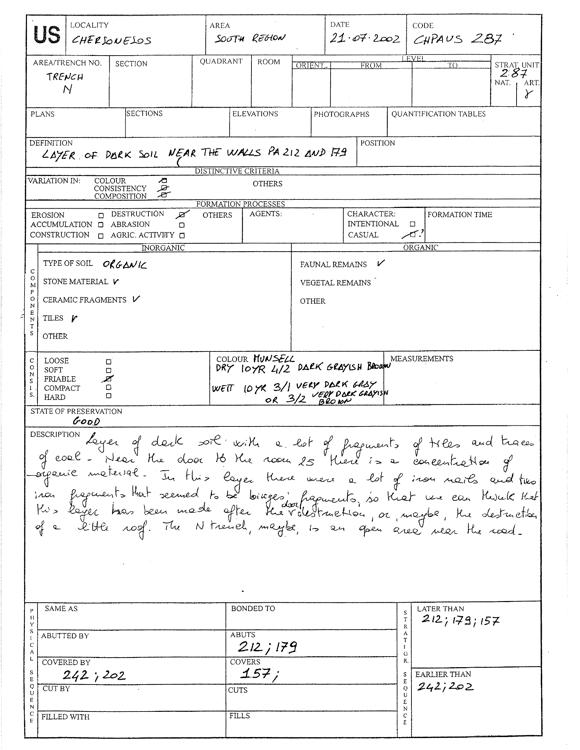 US
LOCALITY
CHERSONESOS
AREA
SOUTH REGION
DATE
21.07.2002
CODE
CHPAUS 287
AREA/TRENCH NO.
TRENCH
N
SECTION
QUADRANT
ROOM
LEVEL
ORIENT.
FROM
TO
STRAT. UNIT
287
NAT.
ART.
PLANS
SECTIONS
ELEVATIONS
PHOTOGRAPHS
QUANTIFICATION TABLES
DEFINITION
LAYER OF DARK SOIL NEAR THE WALLS PA 212 AND 179
POSITION
DISTINCTIVE CRITERIA
VARIATION IN:
COLOUR
CONSISTENCY
COMPOSITION
OTHERS
FORMATION PROCESSES
EROSION
DESTRUCTION
OTHERS
ACCUMULATION
ABRASION
CONSTRUCTION
AGRIC. ACTIVITY
AGENTS:
CHARACTER:
INTENTIONAL
CASUAL ?
FORMATION TIME
COMPONENTS
INORGANIC
TYPE OF SOIL ORGANIC
STONE MATERIAL ✓
CERAMIC FRAGMENTS ✓
TILES ✓
OTHER
ORGANIC
FAUNAL REMAINS ✓
VEGETAL REMAINS
OTHER
CONSIS.
LOOSE
SOFT
FRIABLE
COMPACT
HARD
COLOUR MUNSELL
DRY 10YR 4/2 DARK GRAYISH BROWN
WETT 10YR 3/1 VERY DARK GRAY
OR 3/2 VERY DARK GRAYISH
BROWN
MEASUREMENTS
STATE OF PRESERVATION
GOOD
DESCRIPTION Layer of dark soil with a lot of fragments of tiles and traces
of coal. Near the door to the room 25 there is a concentration of
organic material. In this layer there were a lot of iron nails and two
iron fragments that seemed to be fragments, so that we can think that
this layer has been made after the door destruction, or, maybe, the destruction
of a little roof. The N trench, maybe, is an open area near the road.
PHYSICAL SEQUENCE
SAME AS
BONDED TO
ABUTTED BY
ABUTS
212; 179
COVERED BY
242; 202
COVERS
157;
CUT BY
CUTS
FILLED WITH
FILLS
STRATIGR. SEQUENCE
LATER THAN
212; 179; 157
EARLIER THAN
242; 202